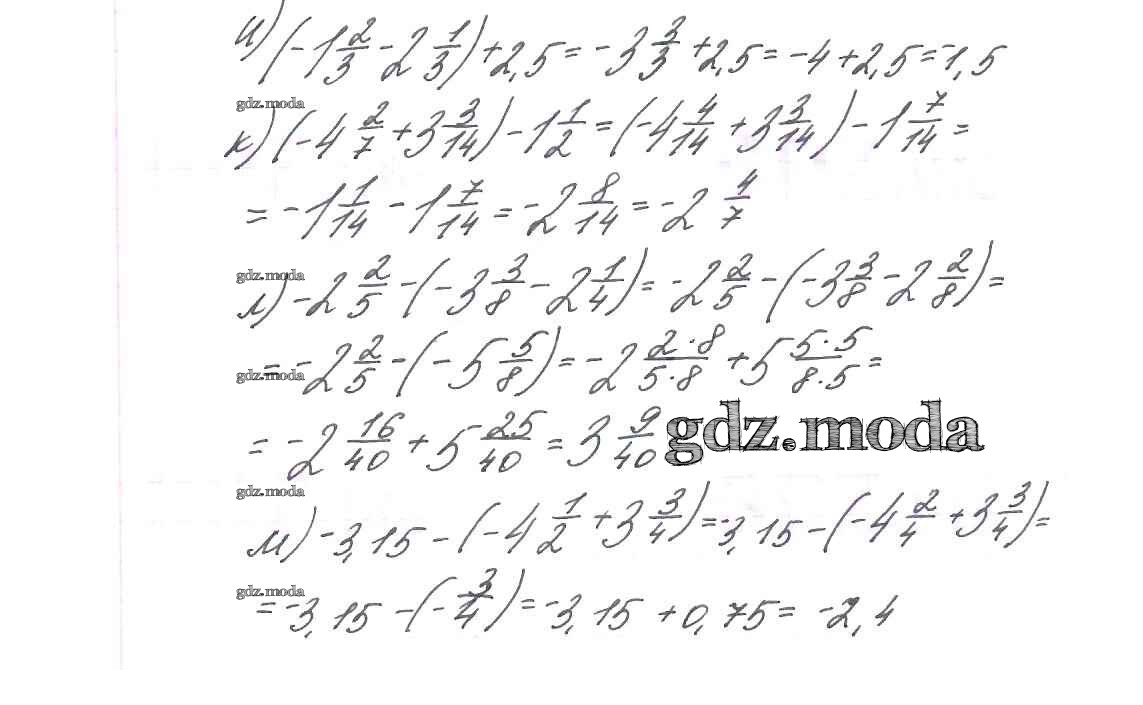 и) (-1 2/3 - 2 1/3) + 2,5 = -3 3/3 + 2,5 = -4 + 2,5 = -1,5
gdz.moda
к) (-4 2/7 + 3 3/14) - 1 1/2 = (-4 4/14 + 3 3/14) - 1 7/14 =
= -1 1/14 - 1 7/14 = -2 8/14 = -2 4/7
gdz.moda
л) -2 2/5 - (-3 3/8 - 2 1/4) = -2 2/5 - (-3 3/8 - 2 2/8) =
= -2 2/5 - (-5 5/8) = -2 2·8/5·8 + 5 5·5/8·5 =
gdz.moda
= -2 16/40 + 5 25/40 = 3 9/40
gdz.moda
gdz.moda
м) -3,15 - (-4 1/2 + 3 3/4) = -3,15 - (-4 2/4 + 3 3/4) =
gdz.moda
= -3,15 - (-3/4) = -3,15 + 0,75 = -2,4